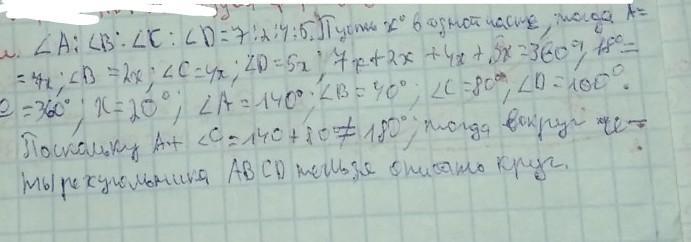 ∠A:∠B:∠C:∠D=7:2:4:5. Пусть x° в одной части, тогда A=
=7x; ∠B=2x; ∠C=4x; ∠D=5x; 7x+2x+4x+5x=360°; 18°=
=360°; x=20°; ∠A=140°; ∠B=40°; ∠C=80°; ∠D=100°.
Поскольку A+∠C=140+80≠180°; тогда вокруг че-
тырехугольника ABCD нельзя описать круг.